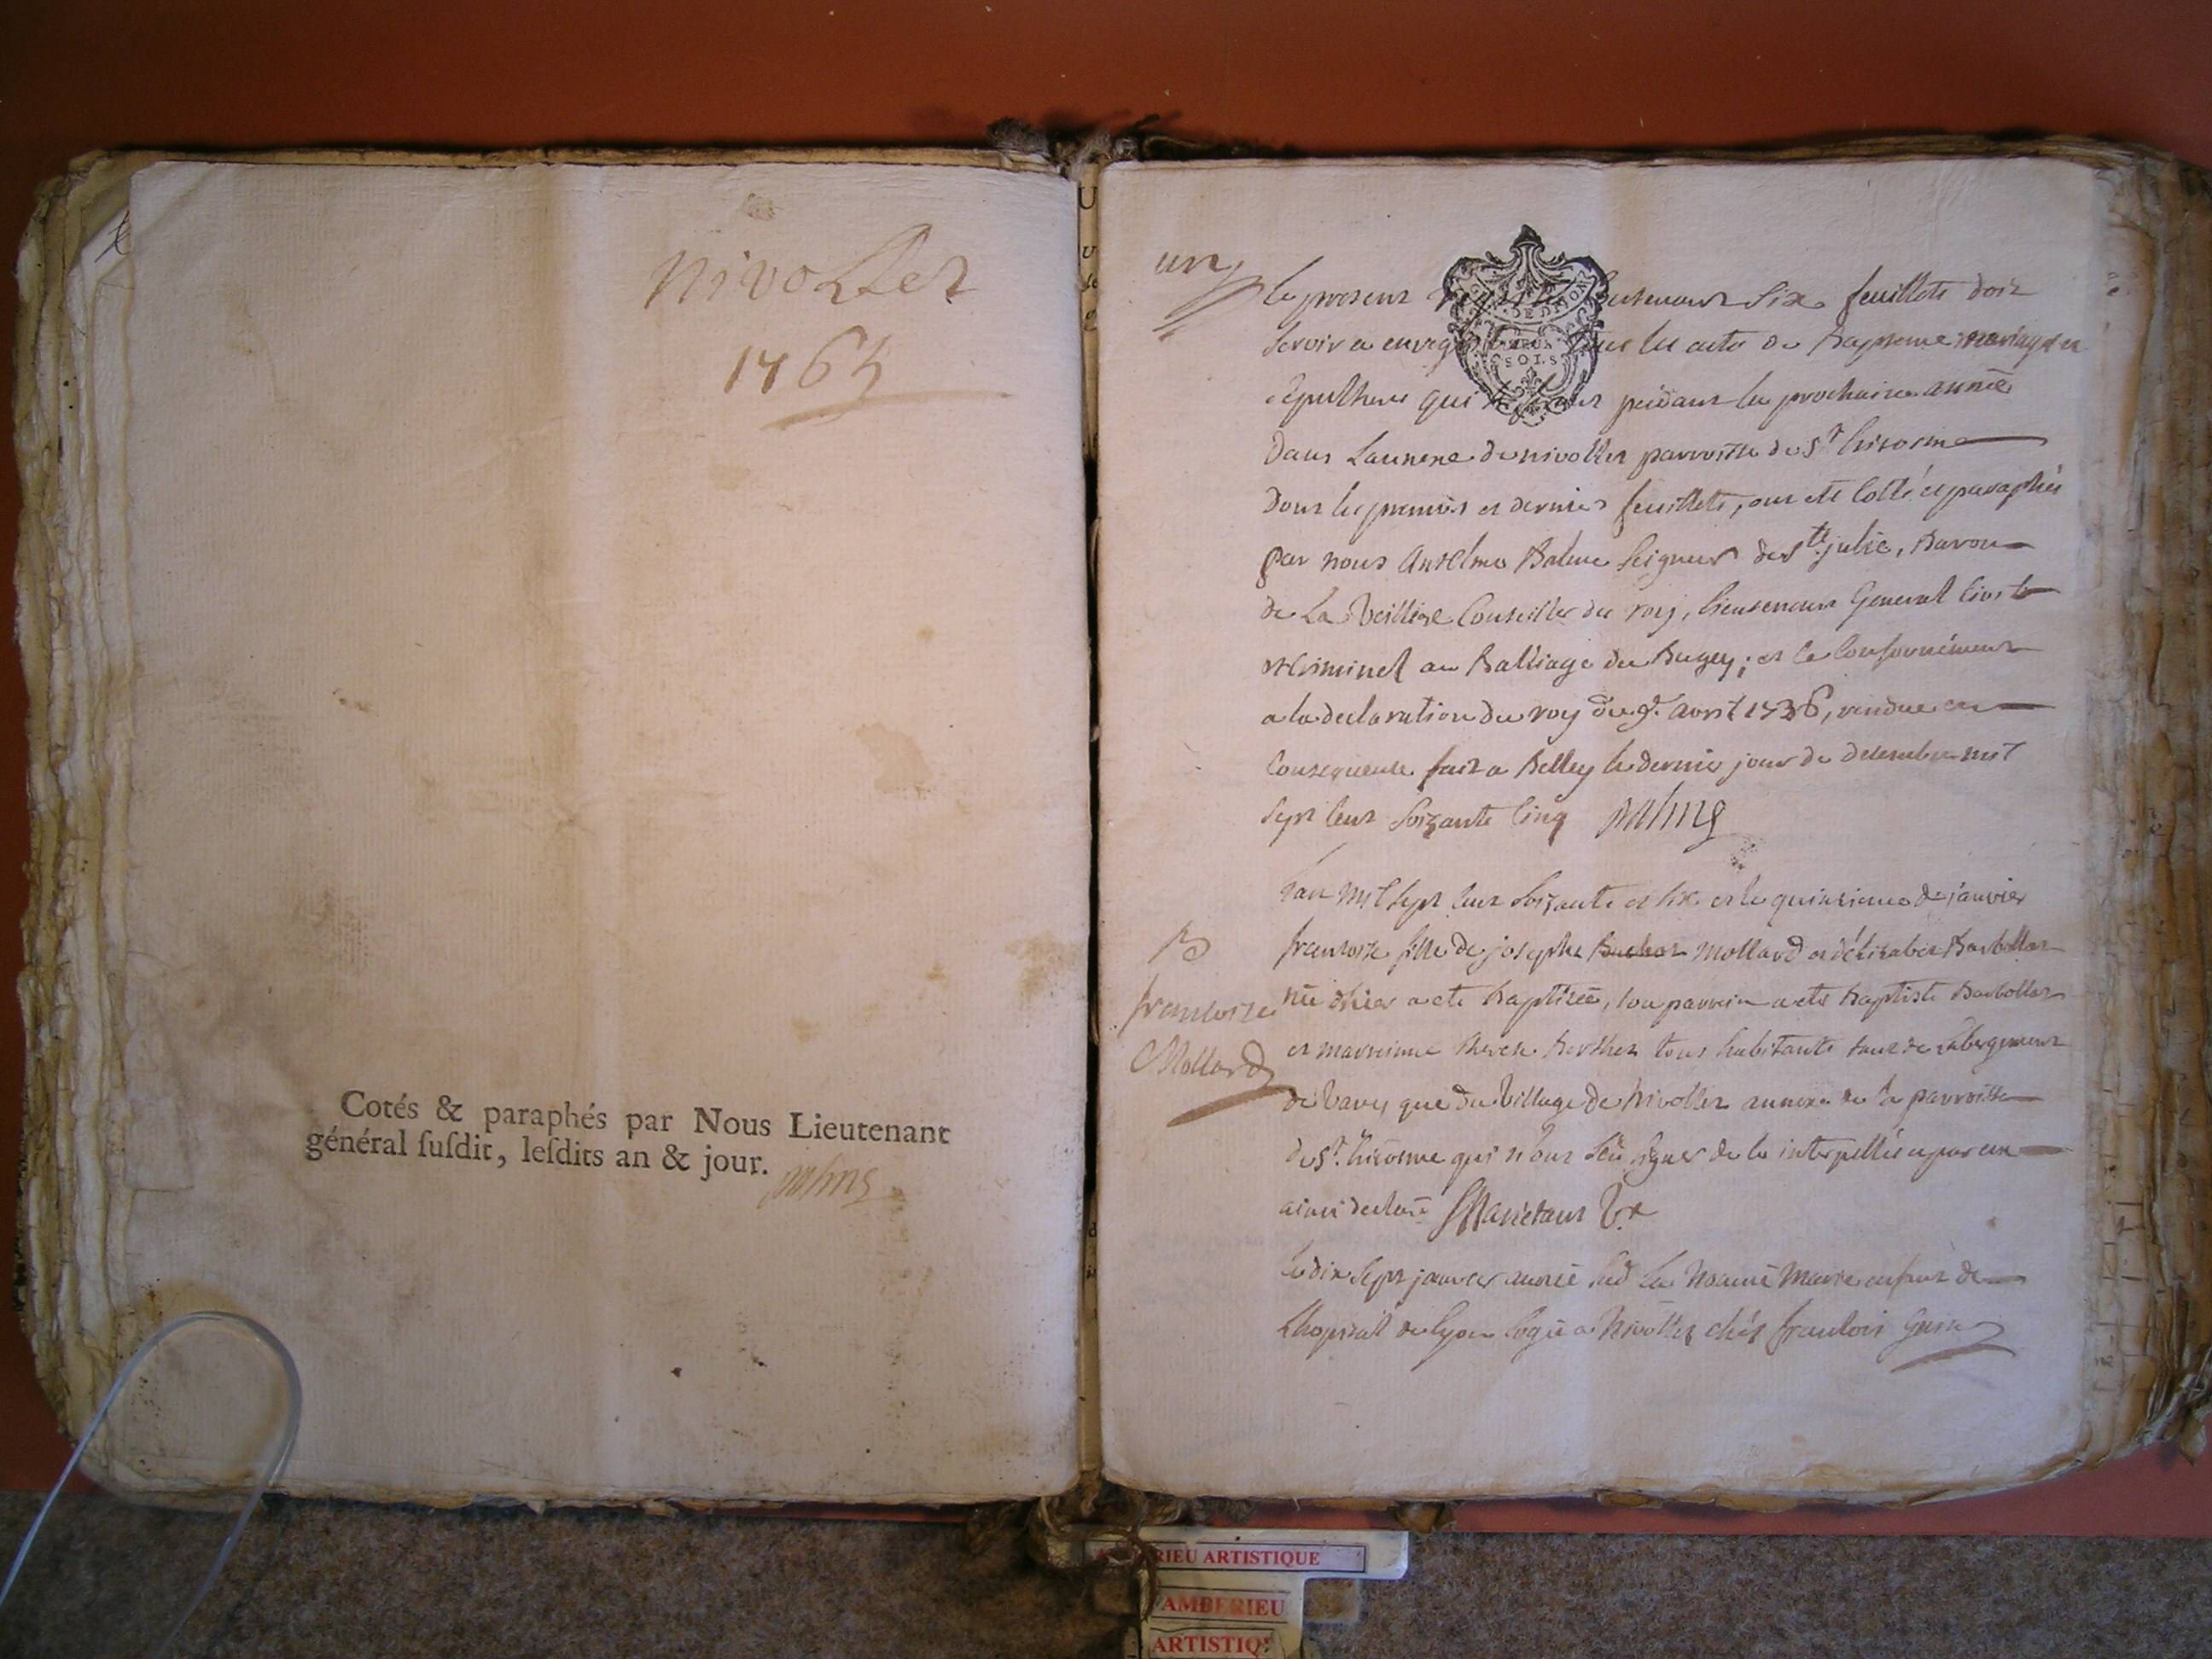 Nivollet
1765
Cotés & paraphés par Nous Lieutenant
général ſuſdit, leſdits an & jour.
Balme
un
le present contenant six feuillets doit
servir a enregistrer tous les acte de Bapteme mariage et
sepulture qui se feront pendant la prochaine année
dans Lannexe de nivollet parroisse de St hierosme
dont les premier et dernier feuillets, ont été Cotté et paraphés
par nous Anselme Balme seigneur de Ste julie, Baron
de La Veilliere Conseiller du roy, lieutenant General Civil
et Criminel au Balliage du Bugey; et ce Conformément
a la declaration du roy du 9e avril 1736, rendue en
Consequence fait a Belley le dernier jour de decembre mil
sept Cent soixante Cinq Balme
Lan mil sept Cent soixante et six et le quinzieme de janvier
B
francoise fille de josephe Mollard et d'élizabet Barbollat
francoise
née d'hier a eté baptisée, son parrain a eté Baptiste Barbollat
Mollard
et marreinne therese Berthet tous habitants tant de labergement
de Varey que du Village de Nivollet annexe de la parroisse
de St. hierosme qui n'ont seu signer de ce interpellés et par eux
ainsi declaré Manétant V.e
Le dix sept janvier année sud La nomée Marie enfant de
Lhopital de lyon logée a Nivollet chés francois Guin
RIEU ARTISTIQUE
AMBERIEU
ARTISTIQ